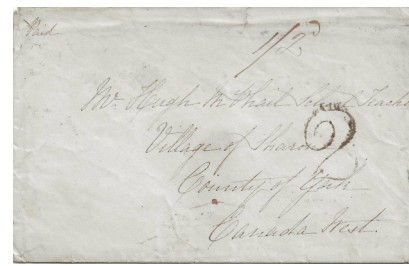 Paid
1/2d
Mr. Hugh McPhail School Teacher
Village of Sharon
County of York
Canada West.